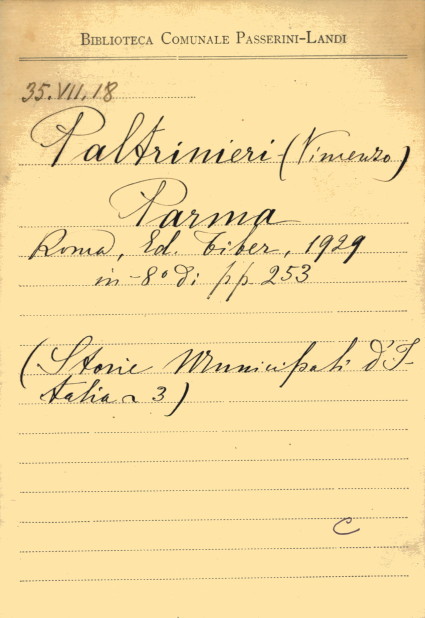 BIBLIOTECA COMUNALE PASSERINI-LANDI
35.VII.18
Paltrinieri (Vincenzo)
Parma
Roma, Ed. Tiber, 1929
in-8º di pp 253
(Storie Municipali d'I-
talia 3)
C